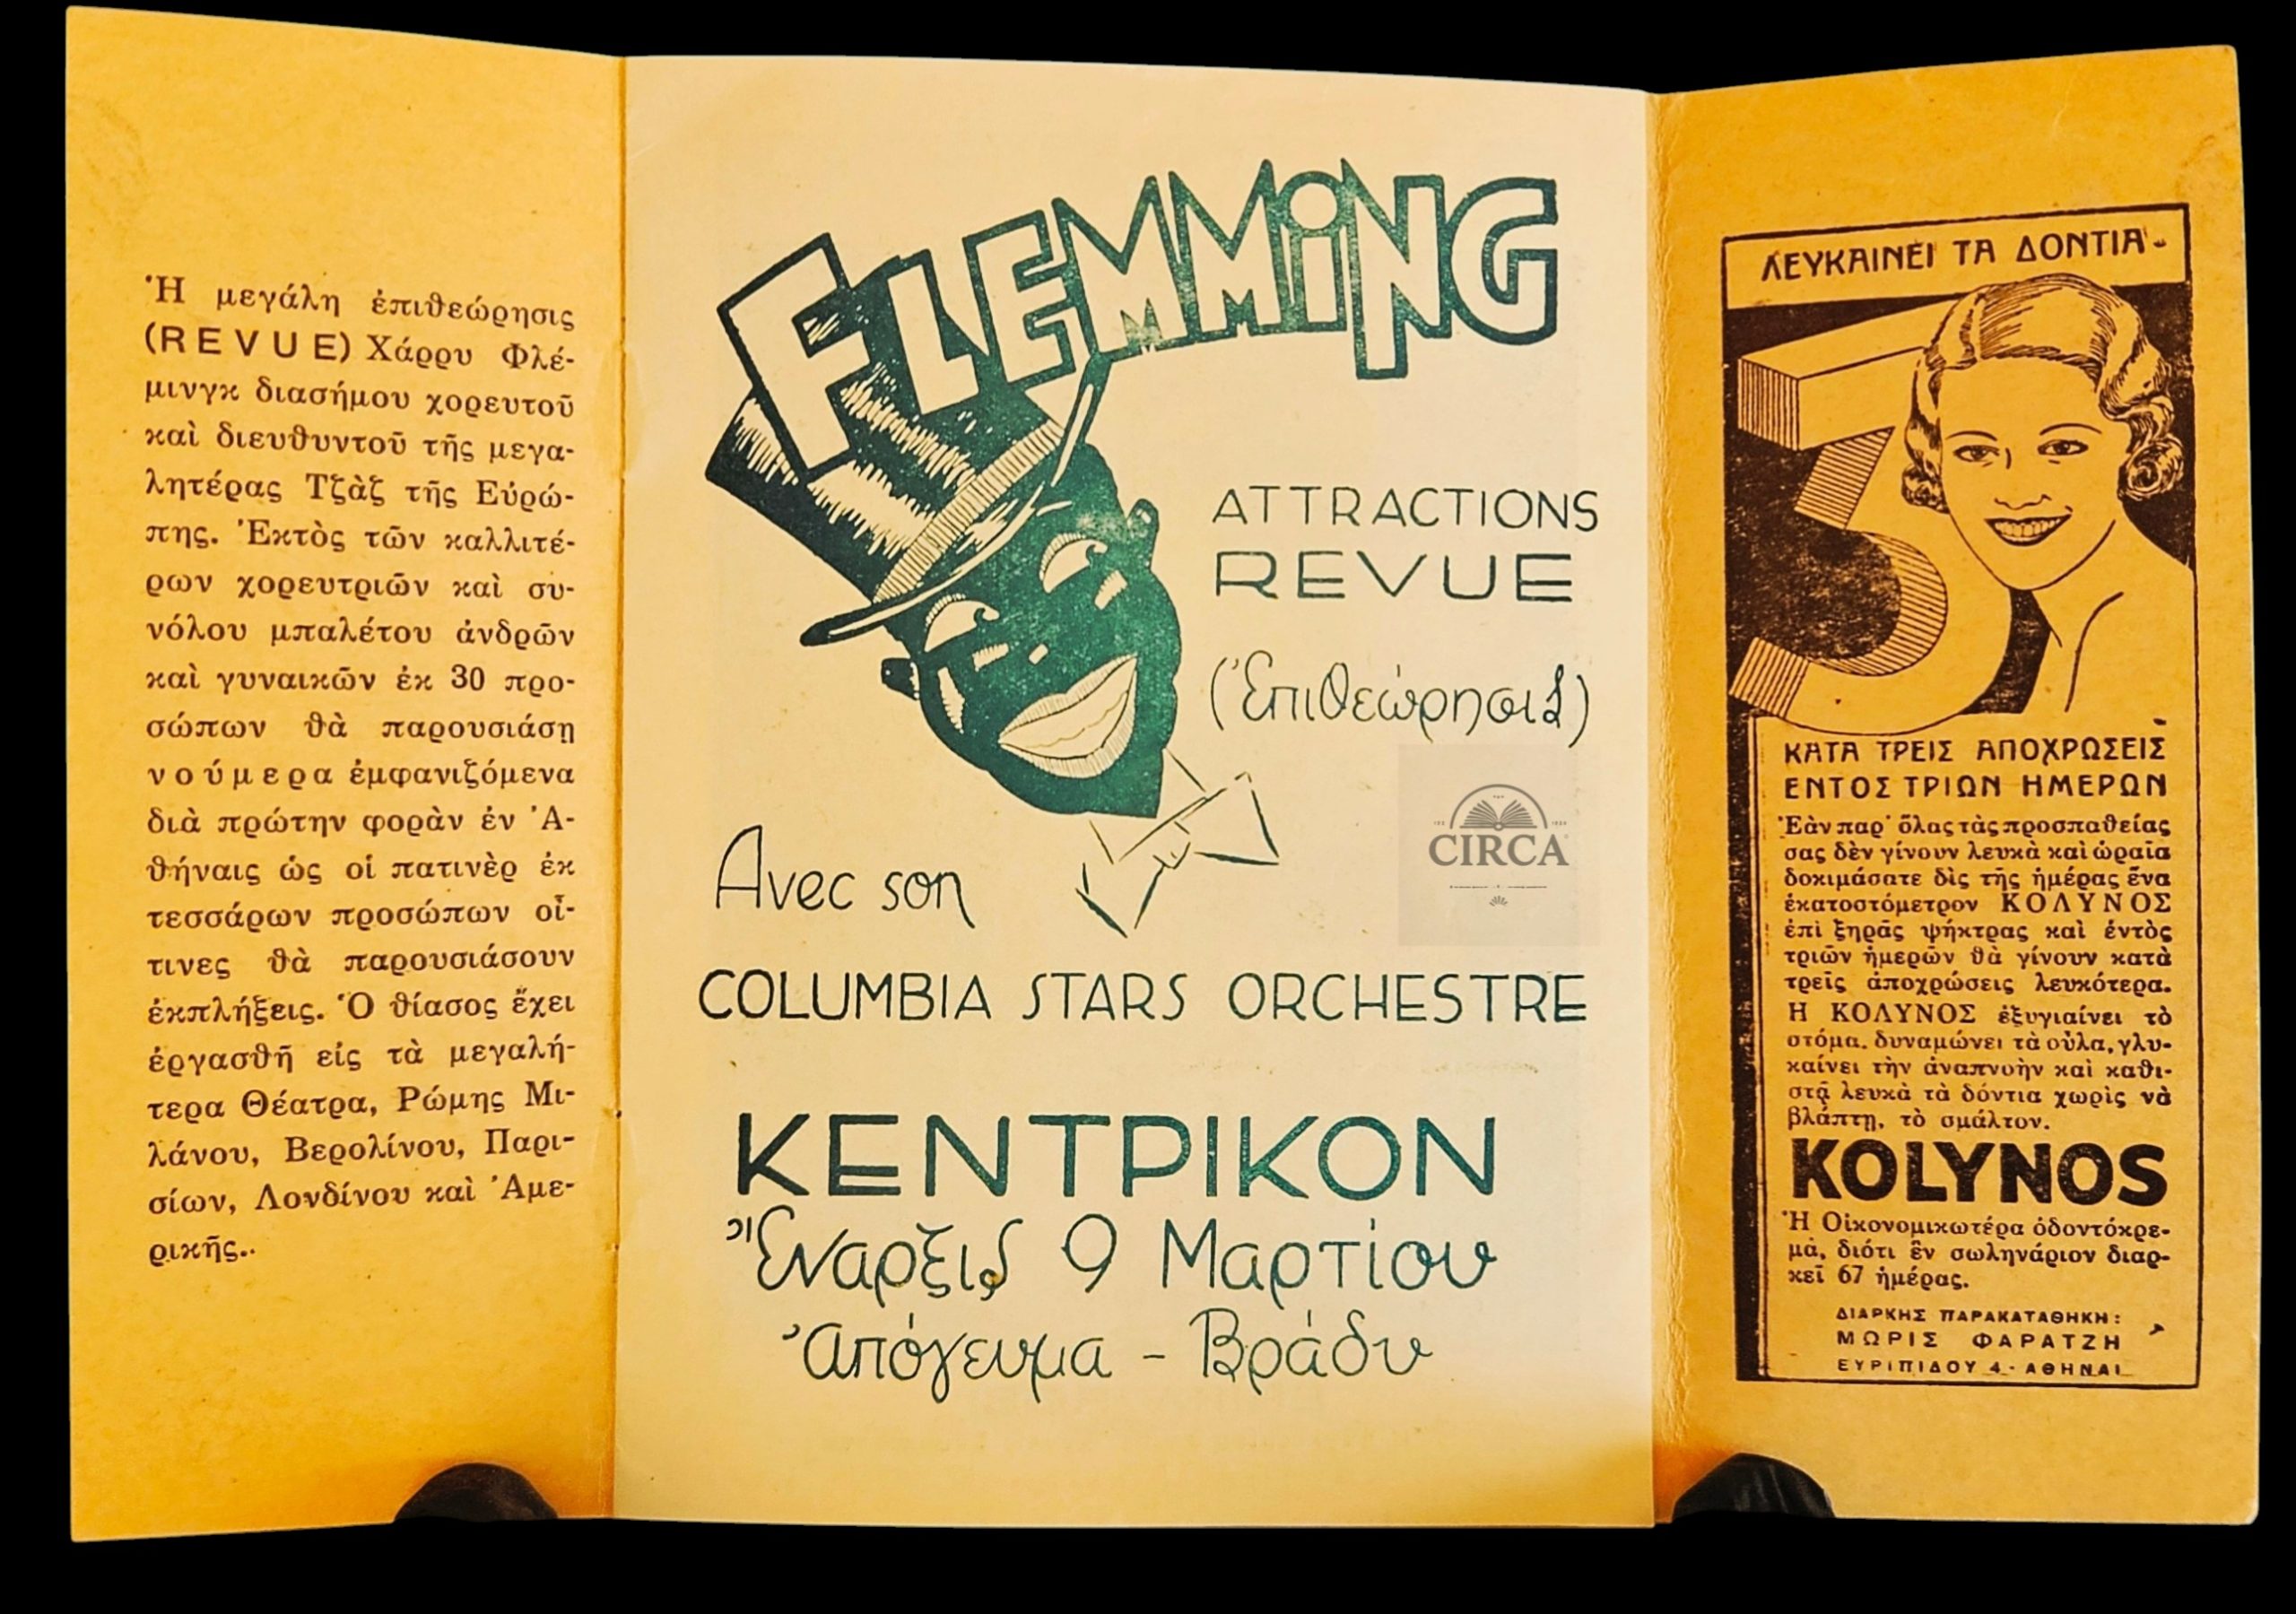 Ἡ μεγάλη ἐπιθεώρησις
(REVUE) Χάρρυ Φλέ-
μινγκ διασήμου χορευτοῦ
καὶ διευθυντοῦ τῆς μεγα-
λητέρας Τζὰζ τῆς Εὐρώ-
πης. Ἐκτὸς τῶν καλλιτέ-
ρων χορευτριῶν καὶ συ-
νόλου μπαλέτου ἀνδρῶν
καὶ γυναικῶν ἐκ 30 προ-
σώπων θὰ παρουσιάσῃ
νούμερα ἐμφανιζόμενα
διὰ πρώτην φορὰν ἐν Ἀ-
θήναις ὡς οἱ πατινὲρ ἐκ
τεσσάρων προσώπων οἵ-
τινες θὰ παρουσιάσουν
ἐκπλήξεις. Ὁ θίασος ἔχει
ἐργασθῆ εἰς τὰ μεγαλή-
τερα Θέατρα, Ρώμης Μι-
λάνου, Βερολίνου, Παρι-
σίων, Λονδίνου καὶ Ἀμε-
ρικῆς..
FLEMMiNG
ATTRACTIONS
REVUE
(Ἐπιθεώρησις)
CIRCA
Avec son
COLUMBIA STARS ORCHESTRE
ΚΕΝΤΡΙΚΟΝ
Ἔναρξις 9 Μαρτίου
Ἀπόγευμα - Βράδυ
ΛΕΥΚΑΙΝΕΙ ΤΑ ΔΟΝΤΙΑ-
3
ΚΑΤΑ ΤΡΕΙΣ ΑΠΟΧΡΩΣΕΙΣ
ΕΝΤΟΣ ΤΡΙΩΝ ΗΜΕΡΩΝ
Ἐὰν παρ' ὅλας τὰς προσπαθείας
σας δὲν γίνουν λευκὰ καὶ ὡραῖα
δοκιμάσατε δὶς τῆς ἡμέρας ἕνα
ἑκατοστόμετρον ΚΟΛΥΝΟΣ
ἐπὶ ξηρᾶς ψήκτρας καὶ ἐντὸς
τριῶν ἡμερῶν θὰ γίνουν κατὰ
τρεῖς ἀποχρώσεις λευκότερα.
Η ΚΟΛΥΝΟΣ ἐξυγιαίνει τὸ
στόμα, δυναμώνει τὰ οὖλα, γλυ-
καίνει τὴν ἀναπνοὴν καὶ καθι-
στᾷ λευκὰ τὰ δόντια χωρὶς νὰ
βλάπτῃ, τὸ σμάλτον.
KOLYNOS
Ἡ Οἰκονομικωτέρα ὀδοντόκρε-
μα, διότι ἓν σωληνάριον διαρ-
κεῖ 67 ἡμέρας.
ΔΙΑΡΚΗΣ ΠΑΡΑΚΑΤΑΘΗΚΗ:
ΜΩΡΙΣ ΦΑΡΑΤΖΗ
ΕΥΡΙΠΙΔΟΥ 4.- ΑΘΗΝΑΙ